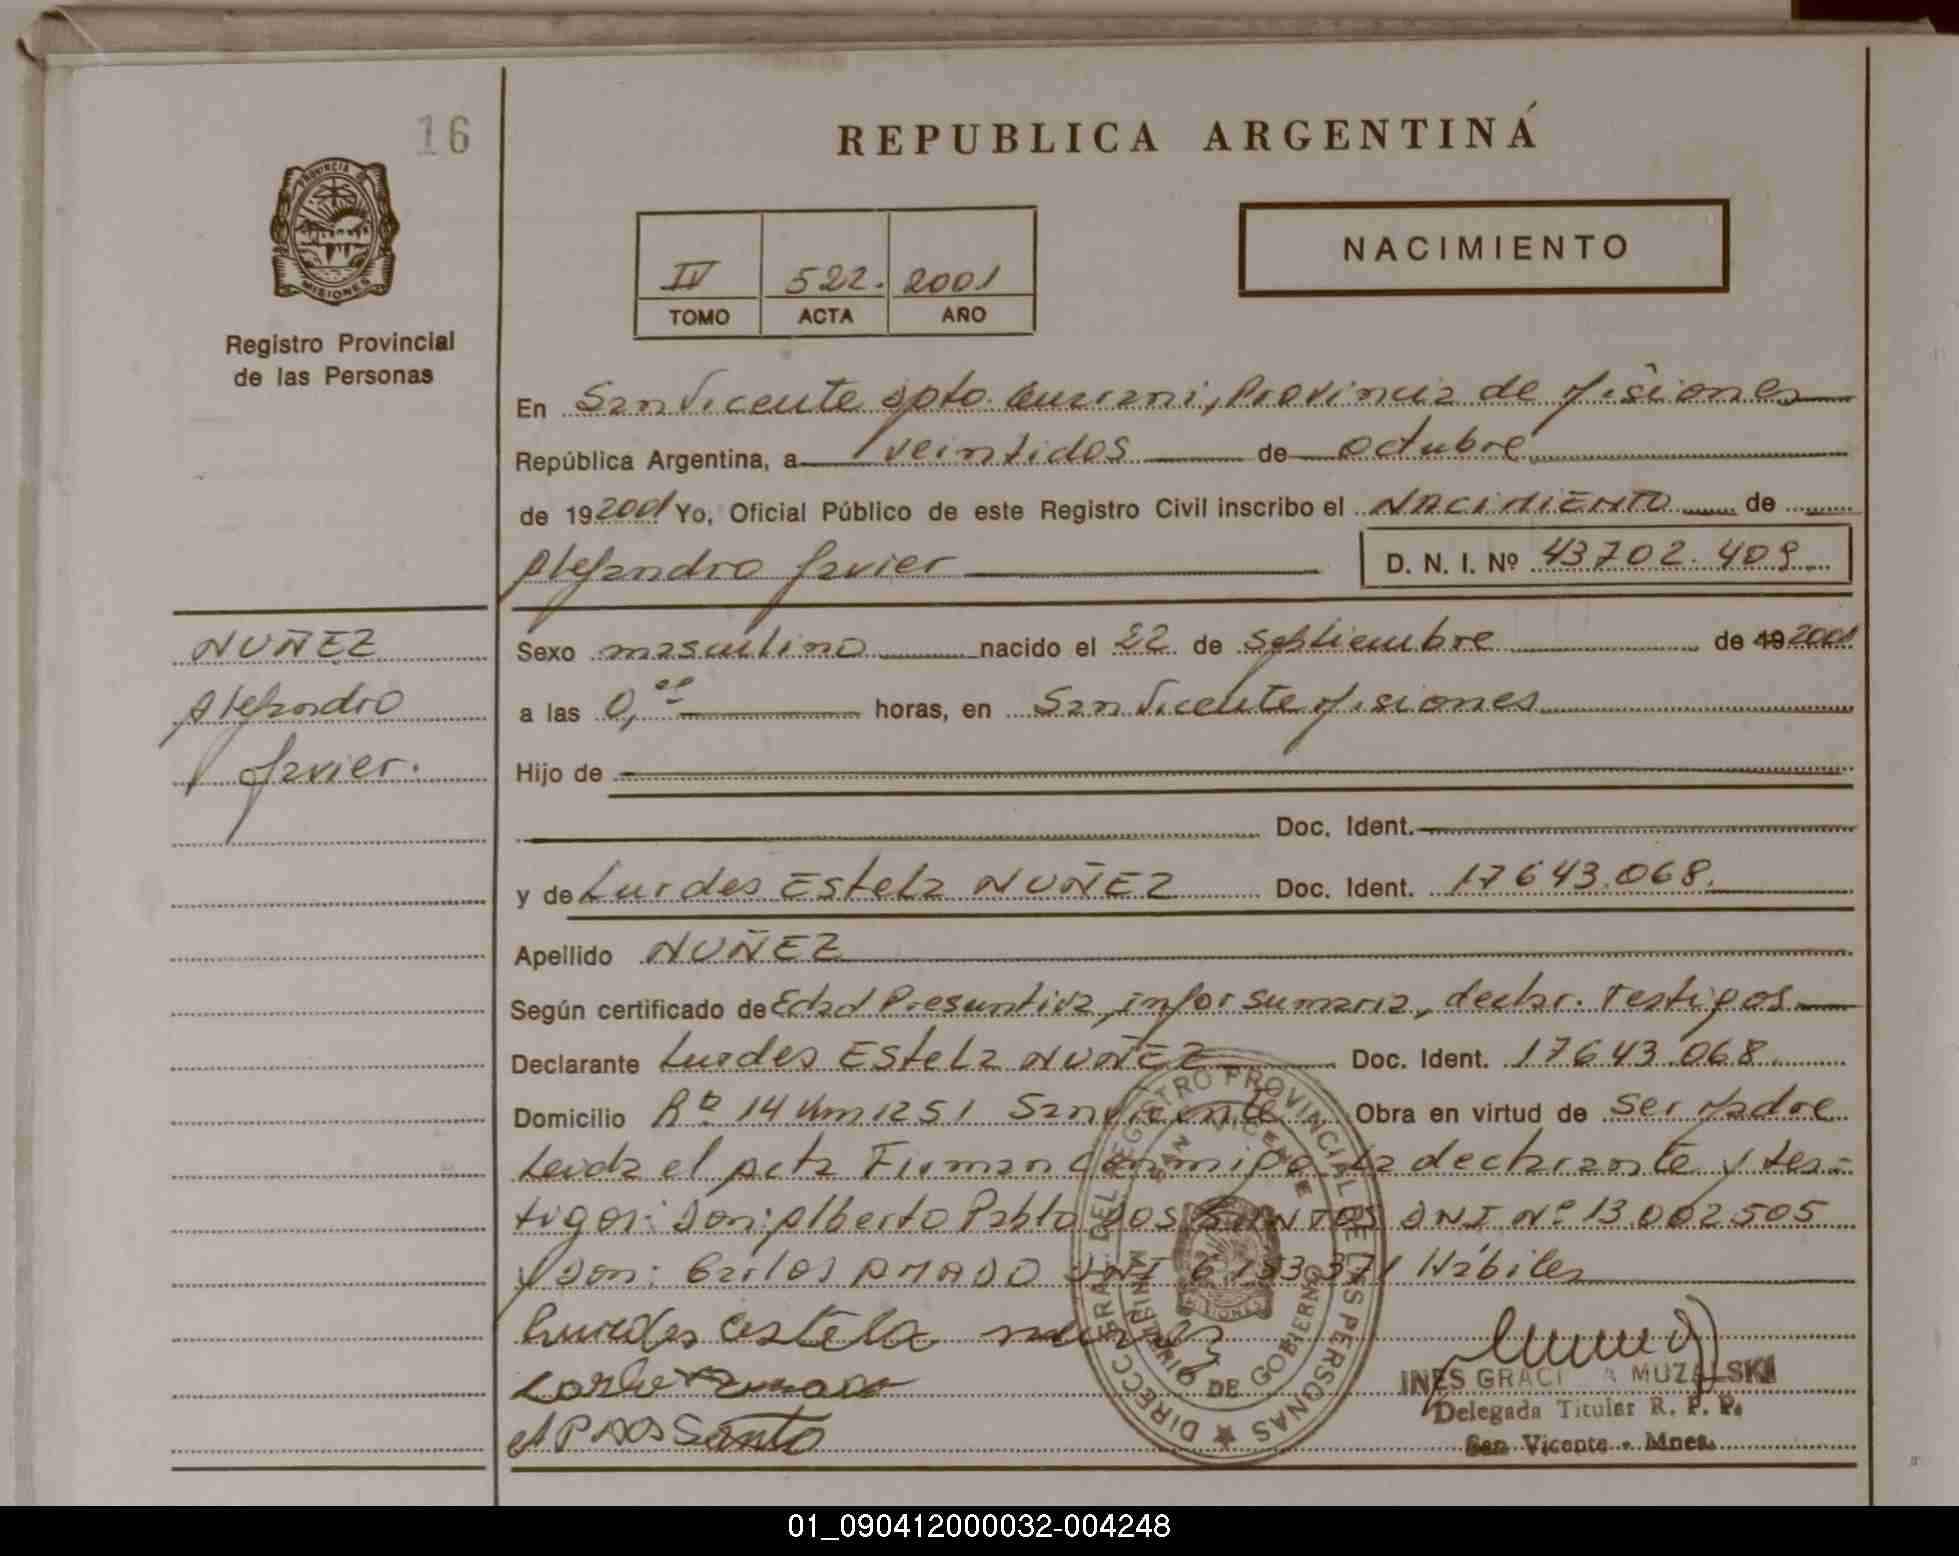 16
REPUBLICA ARGENTINÁ
PROVINCIA DE
MISIONES
NACIMIENTO
IV 522. 2001
TOMO ACTA AÑO
Registro Provincial
de las Personas
En San Vicente dpto. Guarani, Provincia de Misiones
República Argentina, a veintidos de octubre
de 19 2001 Yo, Oficial Público de este Registro Civil inscribo el NACIMIENTO de
Alejandro Javier D. N. I. Nº 43702.409
NUÑEZ
Alejandro
Javier.
Sexo masculino nacido el 22 de Septiembre de 19 2001
a las 0,00 horas, en San Vicente Misiones
Hijo de
Doc. Ident.
y de Lurdes Estela NUÑEZ Doc. Ident. 17643.068.
Apellido NUÑEZ
Según certificado de Edad Presuntiva, infor sumaria, declar. Testigos
Declarante Lurdes Estela NUÑEZ Doc. Ident. 17643.068.
Domicilio Rta 14 Km 1251 San Vicente Obra en virtud de Ser Madre
Leida el Acta Firman conmigo La declarante y tes-
tigos: Don: Alberto Pablo DOS SANTOS DNI Nº 13.002505
y Don: Carlos AMADO DNI 371 Hábiles
Lurdes estela nuñez
Carlo Amado
A P DOS Santo
DIRECC. GRAL. DEL REGISTRO PROVINCIAL DE LAS PERSONAS
SAN VICENTE
MINISTERIO DE GOBIERNO
MISIONES
INES GRACI A MUZALSKI
Delegada Titular R. P. P.
San Vicente - Mnes.
01_090412000032-004248